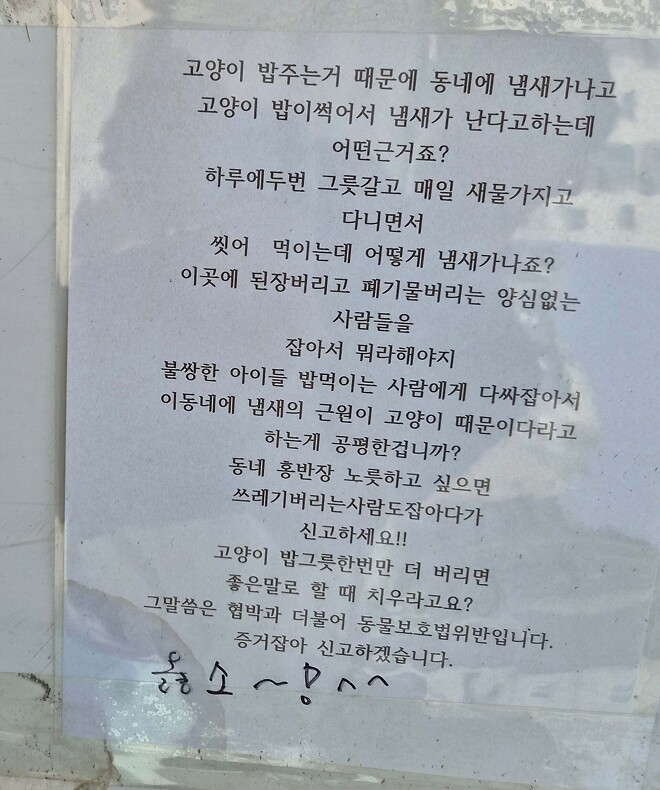 고양이 밥주는거 때문에 동네에 냄새가나고
고양이 밥이썩어서 냄새가 난다고하는데
어떤근거죠?
하루에두번 그릇갈고 매일 새물가지고
다니면서
씻어 먹이는데 어떻게 냄새가나죠?
이곳에 된장버리고 폐기물버리는 양심없는
사람들을
잡아서 뭐라해야지
불쌍한 아이들 밥먹이는 사람에게 다싸잡아서
이동네에 냄새의 근원이 고양이 때문이다라고
하는게 공평한겁니까?
동네 홍반장 노릇하고 싶으면
쓰레기버리는사람도잡아다가
신고하세요!!
고양이 밥그릇한번만 더 버리면
좋은말로 할 때 치우라고요?
그말씀은 협박과 더불어 동물보호법위반입니다.
증거잡아 신고하겠습니다.
옳소~!^^